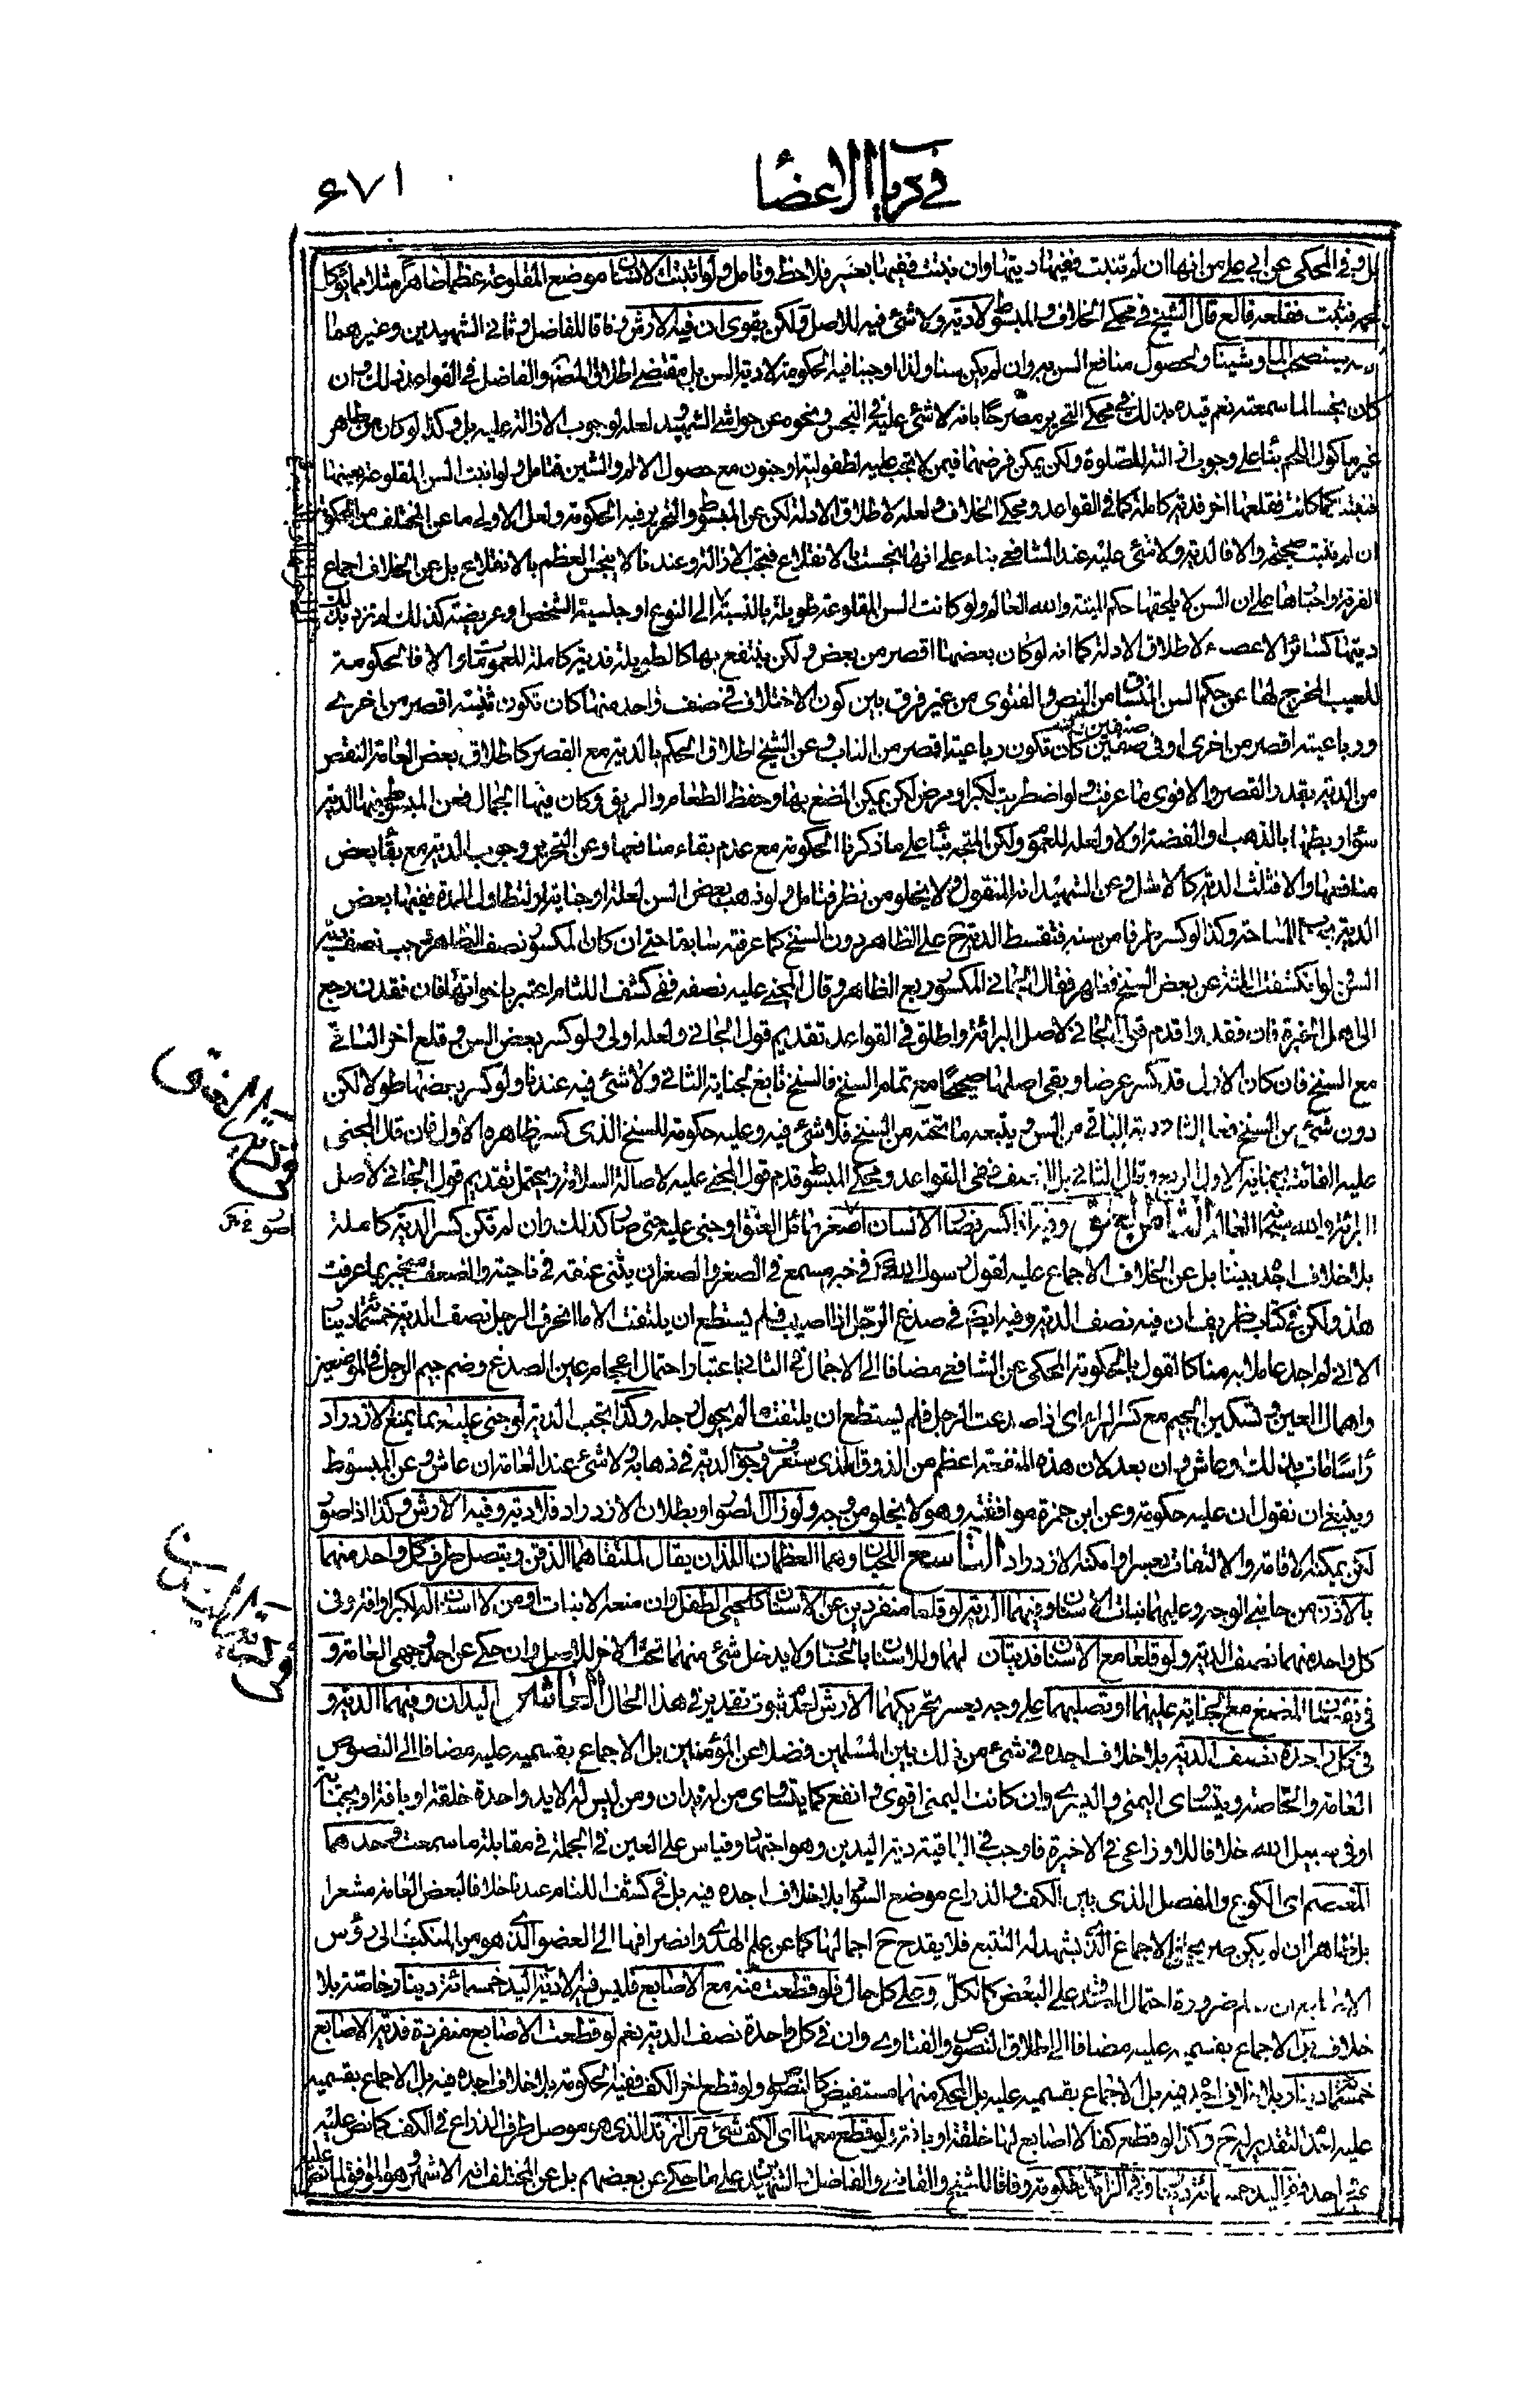 في ديات الاعضاء
٦٧١
بل وفي المحكي عن ابي علي من انها ان لم تنبت ففيها ديتها وان نبتت ففيها بعير فلاحظ وتامل ولو اثبت الانسان موضع المقلوعة عظما طاهرا مثلا مما يؤكل
لحمه فنبت فقلعه قالع قال الشيخ في محكي الخلاف والمبسوط لا دية ولا شئ فيه للاصل ولكن يقوى ان فيه الارش وفاقا للفاضل وثاني الشهيدين وغيرهما
يستصحب الما وشينا ولحصول منافع السن به وان لم يكن سنا ولذا اوجبنا فيه الحكومة لا دية السن بل مقتضى اطلاق المصنف والفاضل في القواعد ذلك وان
كان نجسا لما سمعته نعم قيده بذلك في محكي التحرير مصرحا بانه لا شئ عليه في النجس ونحوه عن حواشي الشهيد ولعله لوجوب الازالة عليه بل وكذا لو كان من طاهر
غير ماكول اللحم بناء على وجوب ازالته للصلوة ولكن يمكن فرضهما فيمن لا تجب عليه لطفولية او جنون مع حصول الالم والشين فتامل ولو انبت السن المقلوعة بعينها
فنبتت كما كانت فقلعها اخر فدية كاملة كما في القواعد ومحكي الخلاف ولعله لاطلاق الادلة لكن عن المبسوط والتحرير فيه الحكومة ولعل الاولى ما عن المختلف من الحكومة
ان لم تنبت صحيحة والا فالدية ولا شئ عليه عند الشافعي بناء على انها نجست بالانقلاع فتجب الازالة وعندنا لا ينجس العظم بالانقلاع بل عن الخلاف اجماع
الفرقة واخبارها على ان السن لا يلحقها حكم الميتة والله العالم ولو كانت السن المقلوعة طويلة بالنسبة الى النوع او جلسية الشخص او عريضة كذلك لم تزد بذلك
ديتها كسائر الاعضاء لاطلاق الادلة كما انه لو كان بعضها اقصر من بعض ولكن ينتفع بها كالطويلة فدية كاملة للعمومات والا فالحكومة
للعيب المخرج لها عن حكم السن المنساق من النص والفتوى من غير فرق بين كون الاختلاف في صنف واحد منها كان تكون ثنيته اقصر من اخرى
ورباعيته اقصر من اخرى او في صنفين كان تكون رباعيته اقصر من الناب وعن الشيخ اطلاق الحكم بالدية مع القصر كاطلاق بعض العامة النقص
من الدية بقدر القصر والاقوى ما عرفت ولو اضطربت لكبر او مرض لكن يمكن المضغ بها وحفظ الطعام والريق وكان فيها الجمال فعن المبسوط فيها الدية
سواء ربطها بالذهب او الفضة او لا ولعله للعموم ولكن المتجه بناء على ما ذكرنا الحكومة مع عدم بقاء منافعها وعن التحرير وجوب الدية مع بقاء بعض
منافعها والا فثلث الدية كالاشل وعن الشهيد انه المنقول ولا يخلو من نظر فتامل ولو ذهب بعض السن لعلة او جناية او لتطاول المدة ففيها بعض
الدية بحسب المساحة وكذا لو كسر طرفا من سنه فتقسط الدية ح على الظاهر دون السنخ كما عرفته سابقا حتى ان كان المكسور نصف الظاهر وجب نصف دية
السن ولو انكشفت اللثة عن بعض السنخ فظهر فقال الجاني المكسور ربع الظاهر وقال المجني عليه نصفه ففي كشف اللثام اعتبر باخواتها فان فقدن رجع
الى اهل الخبرة فان فقدوا قدم قول الجاني لاصل البرائة واطلق في القواعد تقديم قول الجاني ولعله اولى ولو كسر بعض السن وقلع اخر الباقي
مع السنخ فان كان الاول قد كسر عرضا وبقي اصلها صحيحا مع تمام السنخ فالسنخ تابع لجناية الثاني ولا شئ فيه عندنا ولو كسر بعضها طولا لكن
دون شئ من السنخ فعلى الثاني دية الباقي من السن ويتبعه ما تحته من السنخ فلا شئ فيه وعليه حكومة للسنخ الذي كسر ظاهره الاول فان قال المجني
عليه الفائت بجناية الاول الربع وقال الثاني بل النصف ففي القواعد ومحكي المبسوط قدم قول المجني عليه لاصالة السلامة ويحتمل تقديم قول الجاني لاصل
البرائة والله يعلم العالم الثامن العنق وفيه اذا كسر فصار الانسان اصغر مائل العنق او جني عليه حتى صار كذلك وان لم تكن كسر الدية كاملة
بلا خلاف اجده بيننا بل عن الخلاف الاجماع عليه لقول رسول الله في خبر مسمع في الصعر والصعر ان يثنى عنقه في ناحية والضعف منجبر بما عرفت
هذا ولكن في كتاب ظريف ان فيه نصف الدية وفيه ايضا في صدغ الرجل اذا اصيب فلم يستطع ان يلتفت الا ما انحرف الرجل نصف الدية خمسمائة دينار
الا اني لم اجد عاملا به منا كالقول بالحكومة المحكي عن الشافعي مضافا الى الاجمال في الثاني باعتبار احتمال اعجام عين الصدغ وضم جيم الرجل في الموضعين
واهمال العين وتسكين الجيم مع كسر الراء اي اذا صدعت الرجل فلم يستطع ان يلتفت ما لم يحول رجله وكذا تجب الدية لو جني عليه بما يمنع الازدراد
راسا فمات بذلك وعاش وان بعد لان هذه المنفعة اعظم من الذوق الذي ستعرف وجوب الدية في ذهابه ولا شئ عند العامة ان عاش وعن المبسوط
وينبغي ان نقول ان عليه حكومة وعن ابن حمزة موافقته وهو لا يخلو من وجه ولو زال الصور او بطلان الازدراد فلا دية وفيه الارش وكذا اذا صور
لكن يمكنه الاقامة والالتفات بعسر او امكنه الازدراد التاسع اللحيان وهما العظمان اللذان يقال لملتقاهما الذقن ويتصل طرف كل واحد منهما
بالاذن من جانبي الوجه وعليهما نبات الاسنان وفيهما الدية لو قلعا منفردين عن الاسنان كلحيي الطفل وان منعه الانبات او من لا اسنان له لكبر او افة وفي
كل واحد منهما نصف الدية ولو قلعا مع الاسنان فديتان لهما وللاسنان بالحساب ولا يدخل شئ منهما تحت الاخر للاصل وان حكي عن احد وجهي العامة و
في نقصان المضغ مع الجناية عليهما او تصلبهما على وجه يعسر تحريكهما الارش لعدم ثبوت تقدير في هذا الحال العاشر اليدان وفيهما الدية و
في كل واحدة نصف الدية بلا خلاف اجده في شئ من ذلك بين المسلمين فضلا عن المؤمنين بل الاجماع بقسميه عليه مضافا الى النصوص
العامة والخاصة ويتساوى اليمنى واليسرى وان كانت اليمنى اقوى وانفع كما يتساوى من له يدان ومن ليس له الا يد واحدة خلقة او بافة او بجناية
او في سبيل الله خلافا للاوزاعي في الاخيرة فاوجب في الباقية دية اليدين وهو اجتهاد وقياس على العين في الجملة في مقابلة ما سمعت وحدهما
المعصم اي الكوع والمفصل الذي بين الكف والذراع موضع السوار بلا خلاف اجده فيه بل في كشف اللثام عندنا خلافا لبعض العامة مشعرا
بل ظاهرا ان لم يكن صريحا في الاجماع الذي يشهد له التتبع فلا يقدح ح اجمالها كما عن علم الهدى وانصرافها الى العضو الذي هو من المنكب الى رؤس
الاصابع ضرورة احتمال اليد على البعض كالكل وعلى كل حال فلو قطعت مع الاصابع فليس فيه الا دية اليد خمسمائة دينار خاصة بلا
خلاف بل الاجماع بقسميه عليه مضافا الى اطلاق النصوص والفتاوى وان في كل واحدة نصف الدية نعم لو قطعت الاصابع منفردة فدية الاصابع
خمسمائة دينار بلا خلاف اجده فيه بل الاجماع بقسميه عليه بل المحكي منهما مستفيض كالنصوص ولو قطع اخر الكف ففيه الحكومة بلا خلاف اجده فيه بل الاجماع بقسميه
عليه لعدم التقدير له ح وكذا لو قطع كفا لا اصابع لها خلقة او بافة ولو قطع معها اي الكف شئ من الزند الذي هو موصل طرف الذراع في الكف كما نص عليه
غير واحد ففي اليد خمسمائة دينار وفي الزائد حكومة وفاقا للشيخ والقاضي والفاضل والشهيدين على ما حكي عن بعضهم بل عن المختلف انه الاشهر وهو الموافق لما نص عليه
في دية العنق
في دية اللحيين